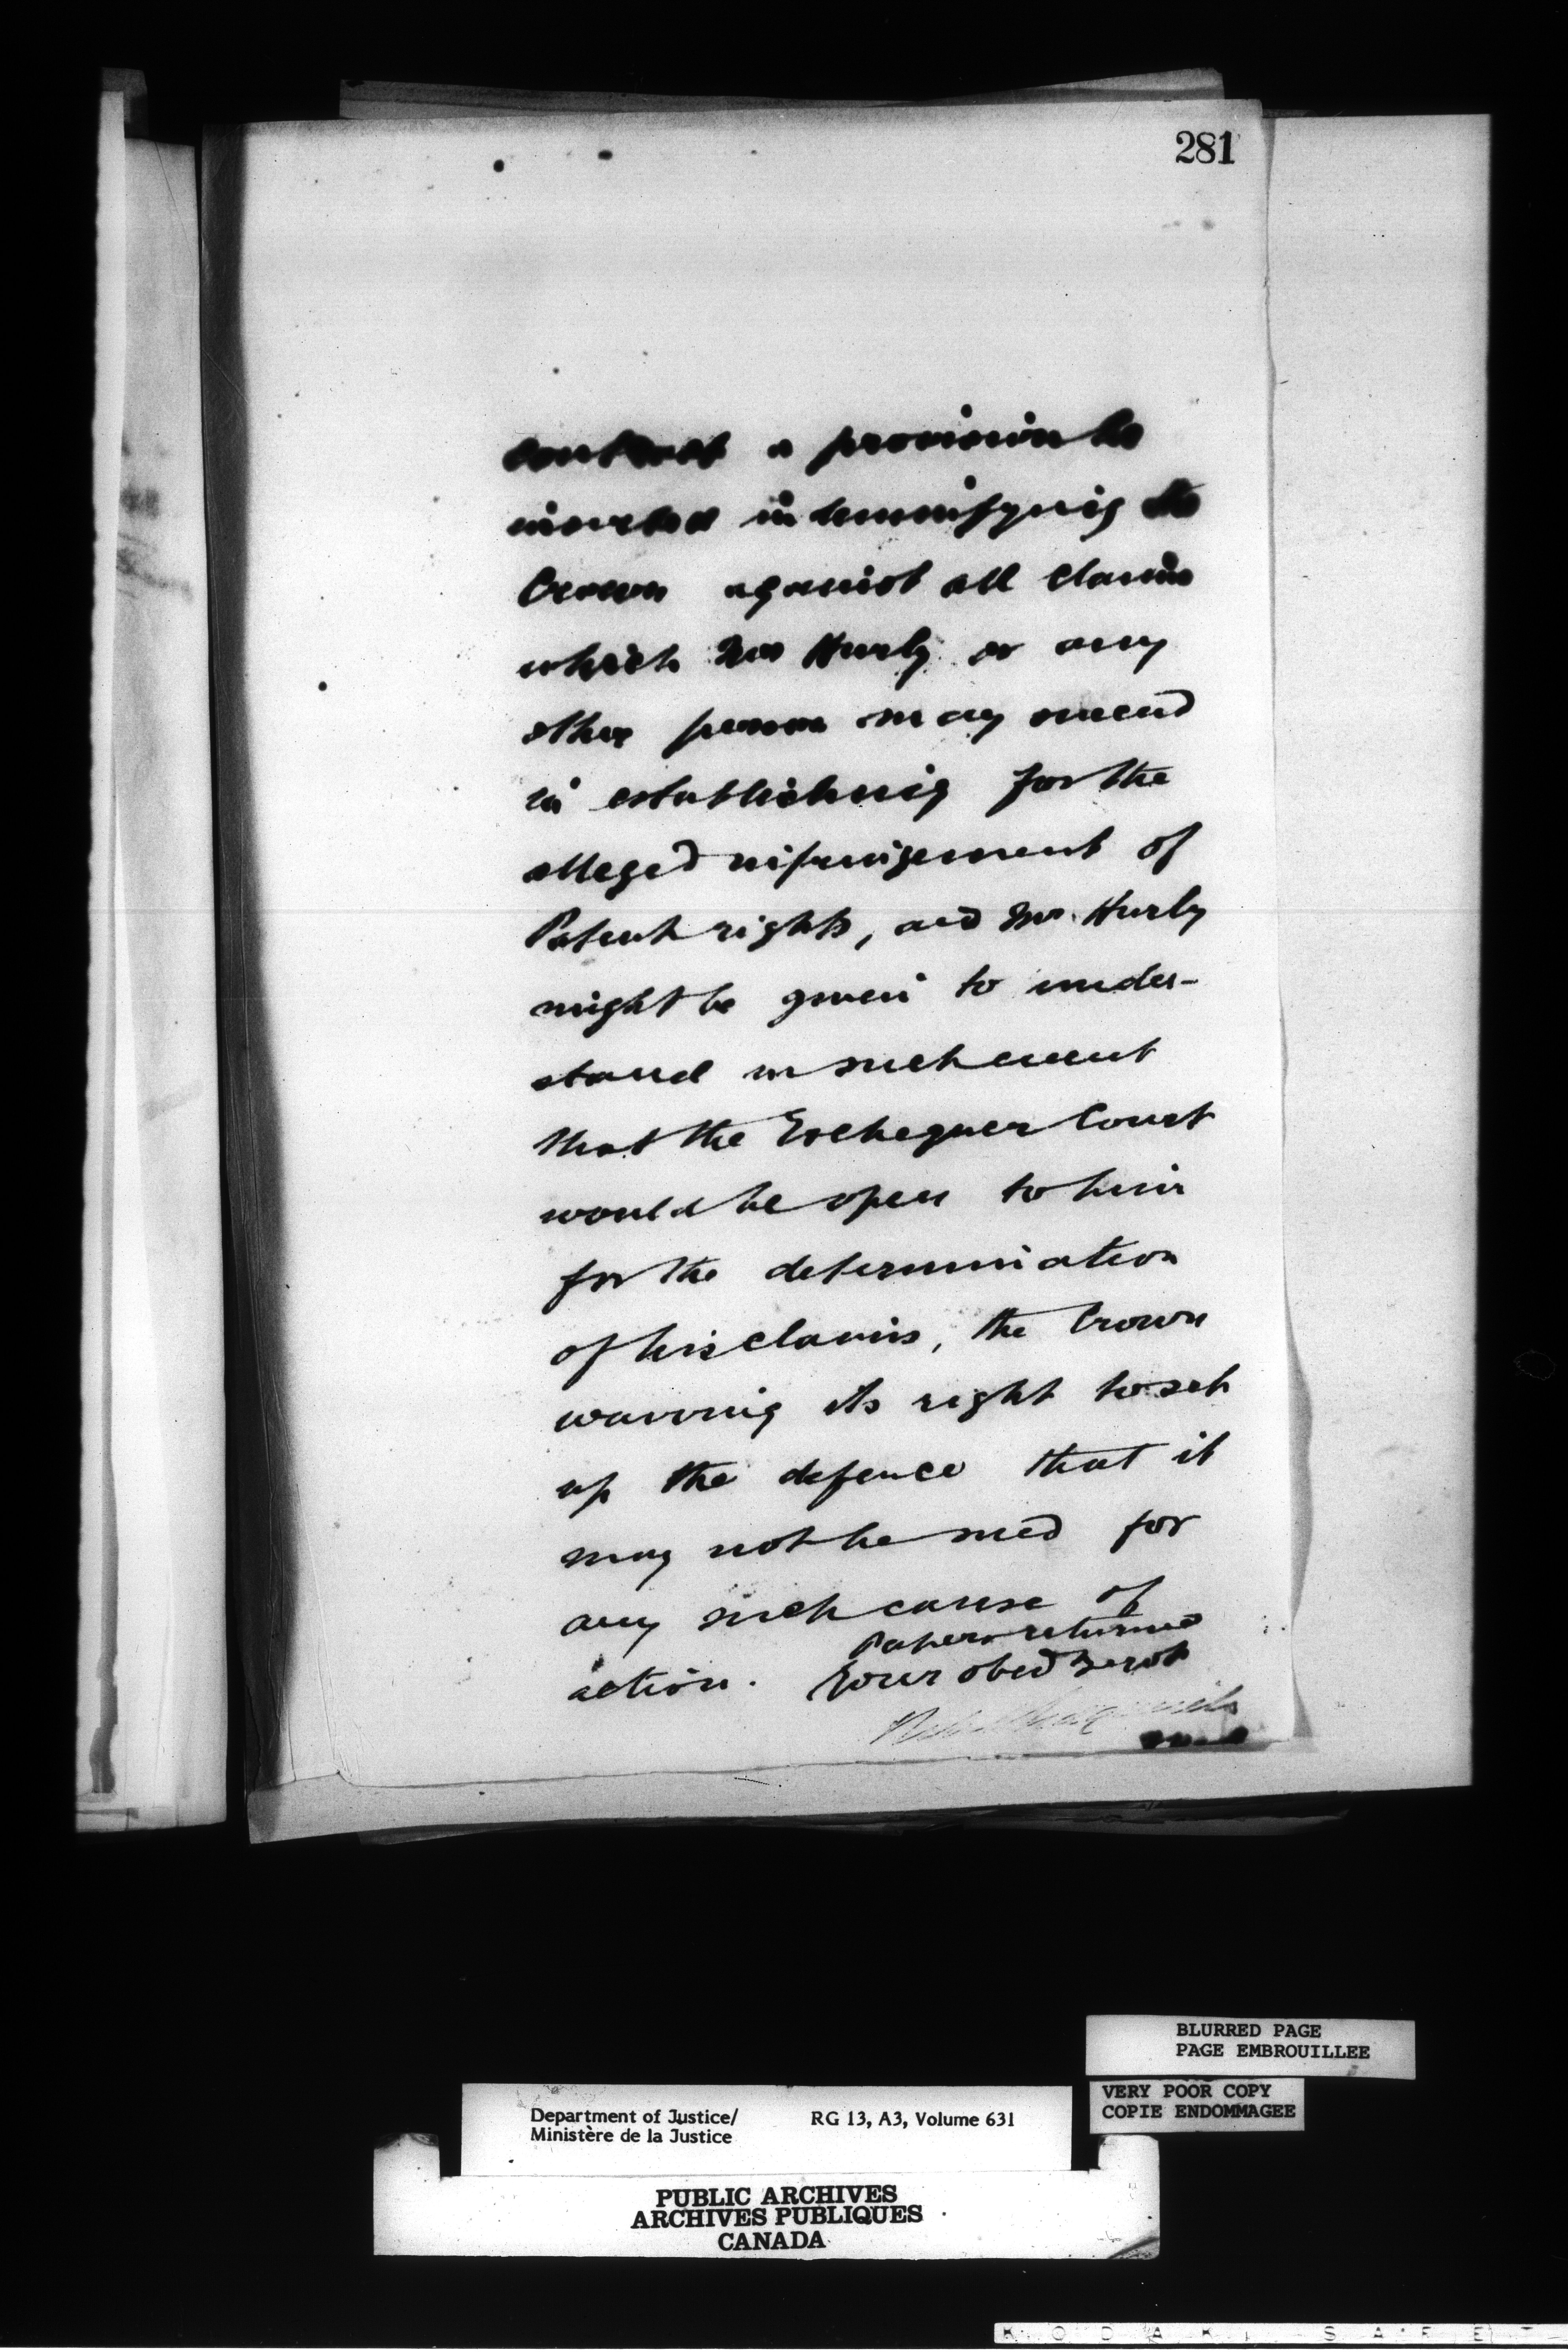 281
contract a provision be
inserted indemnifying the
Crown against all claims
which Mr Hurly or any
other person may succeed
in establishing for the
alleged infringement of
Patent rights, and Mr. Hurly
might be given to under-
stand in such event
that the Exchequer Court
would be open to him
for the determination
of his claims, the Crown
waiving its right to set
up the defence that it
may not be sued for
any such cause of
action.
Papers returned
Your obed Servt
BLURRED PAGE
PAGE EMBROUILLEE
VERY POOR COPY
COPIE ENDOMMAGEE
Department of Justice/ RG 13, A3, Volume 631
Ministère de la Justice
PUBLIC ARCHIVES
ARCHIVES PUBLIQUES
CANADA
K O D A K S A F E T